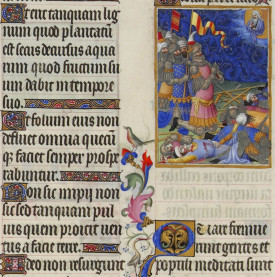 Et erit tanquam lig
num quod plantatum
est secus decursus aqua
rum quod fructum su
um dabit in tempore
suo.
Et folium eius non
defluet omnia quecūq̄
faciet semper prospe
rabuntur.
Non sic impii non
sic sed tanquam pul
uis quem proicit ven
tus a facie terre.
Ideo non resurgunt
Quare fremue
runt gentes et
populi meditati sunt